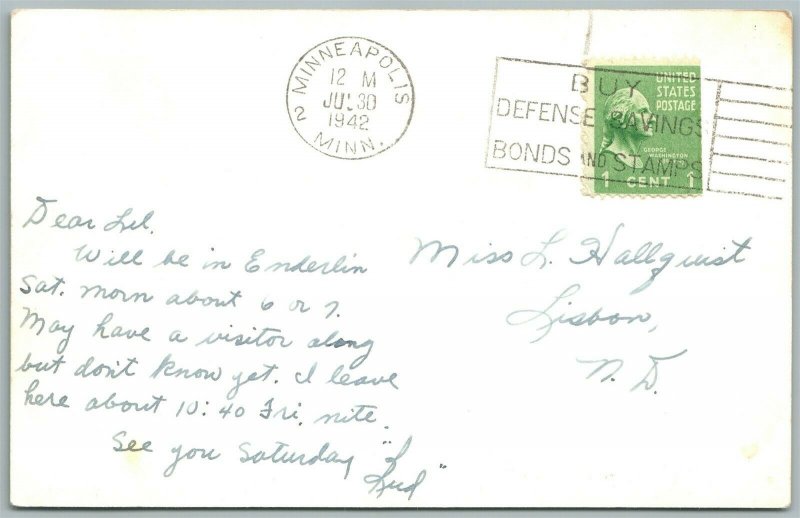 MINNEAPOLIS
12 M
JUL 30
1942
2
MINN.
BUY
DEFENSE SAVINGS
BONDS AND STAMPS
UNITED
STATES
POSTAGE
GEORGE
WASHINGTON
1 CENT 1
Dear Lil.
Will be in Enderlin
Sat. morn about 6 or 7.
May have a visitor along
but don't know yet. I leave
here about 10:40 Fri. nite.
See you Saturday
Miss L. Hallquist
Lisbon,
N. D.